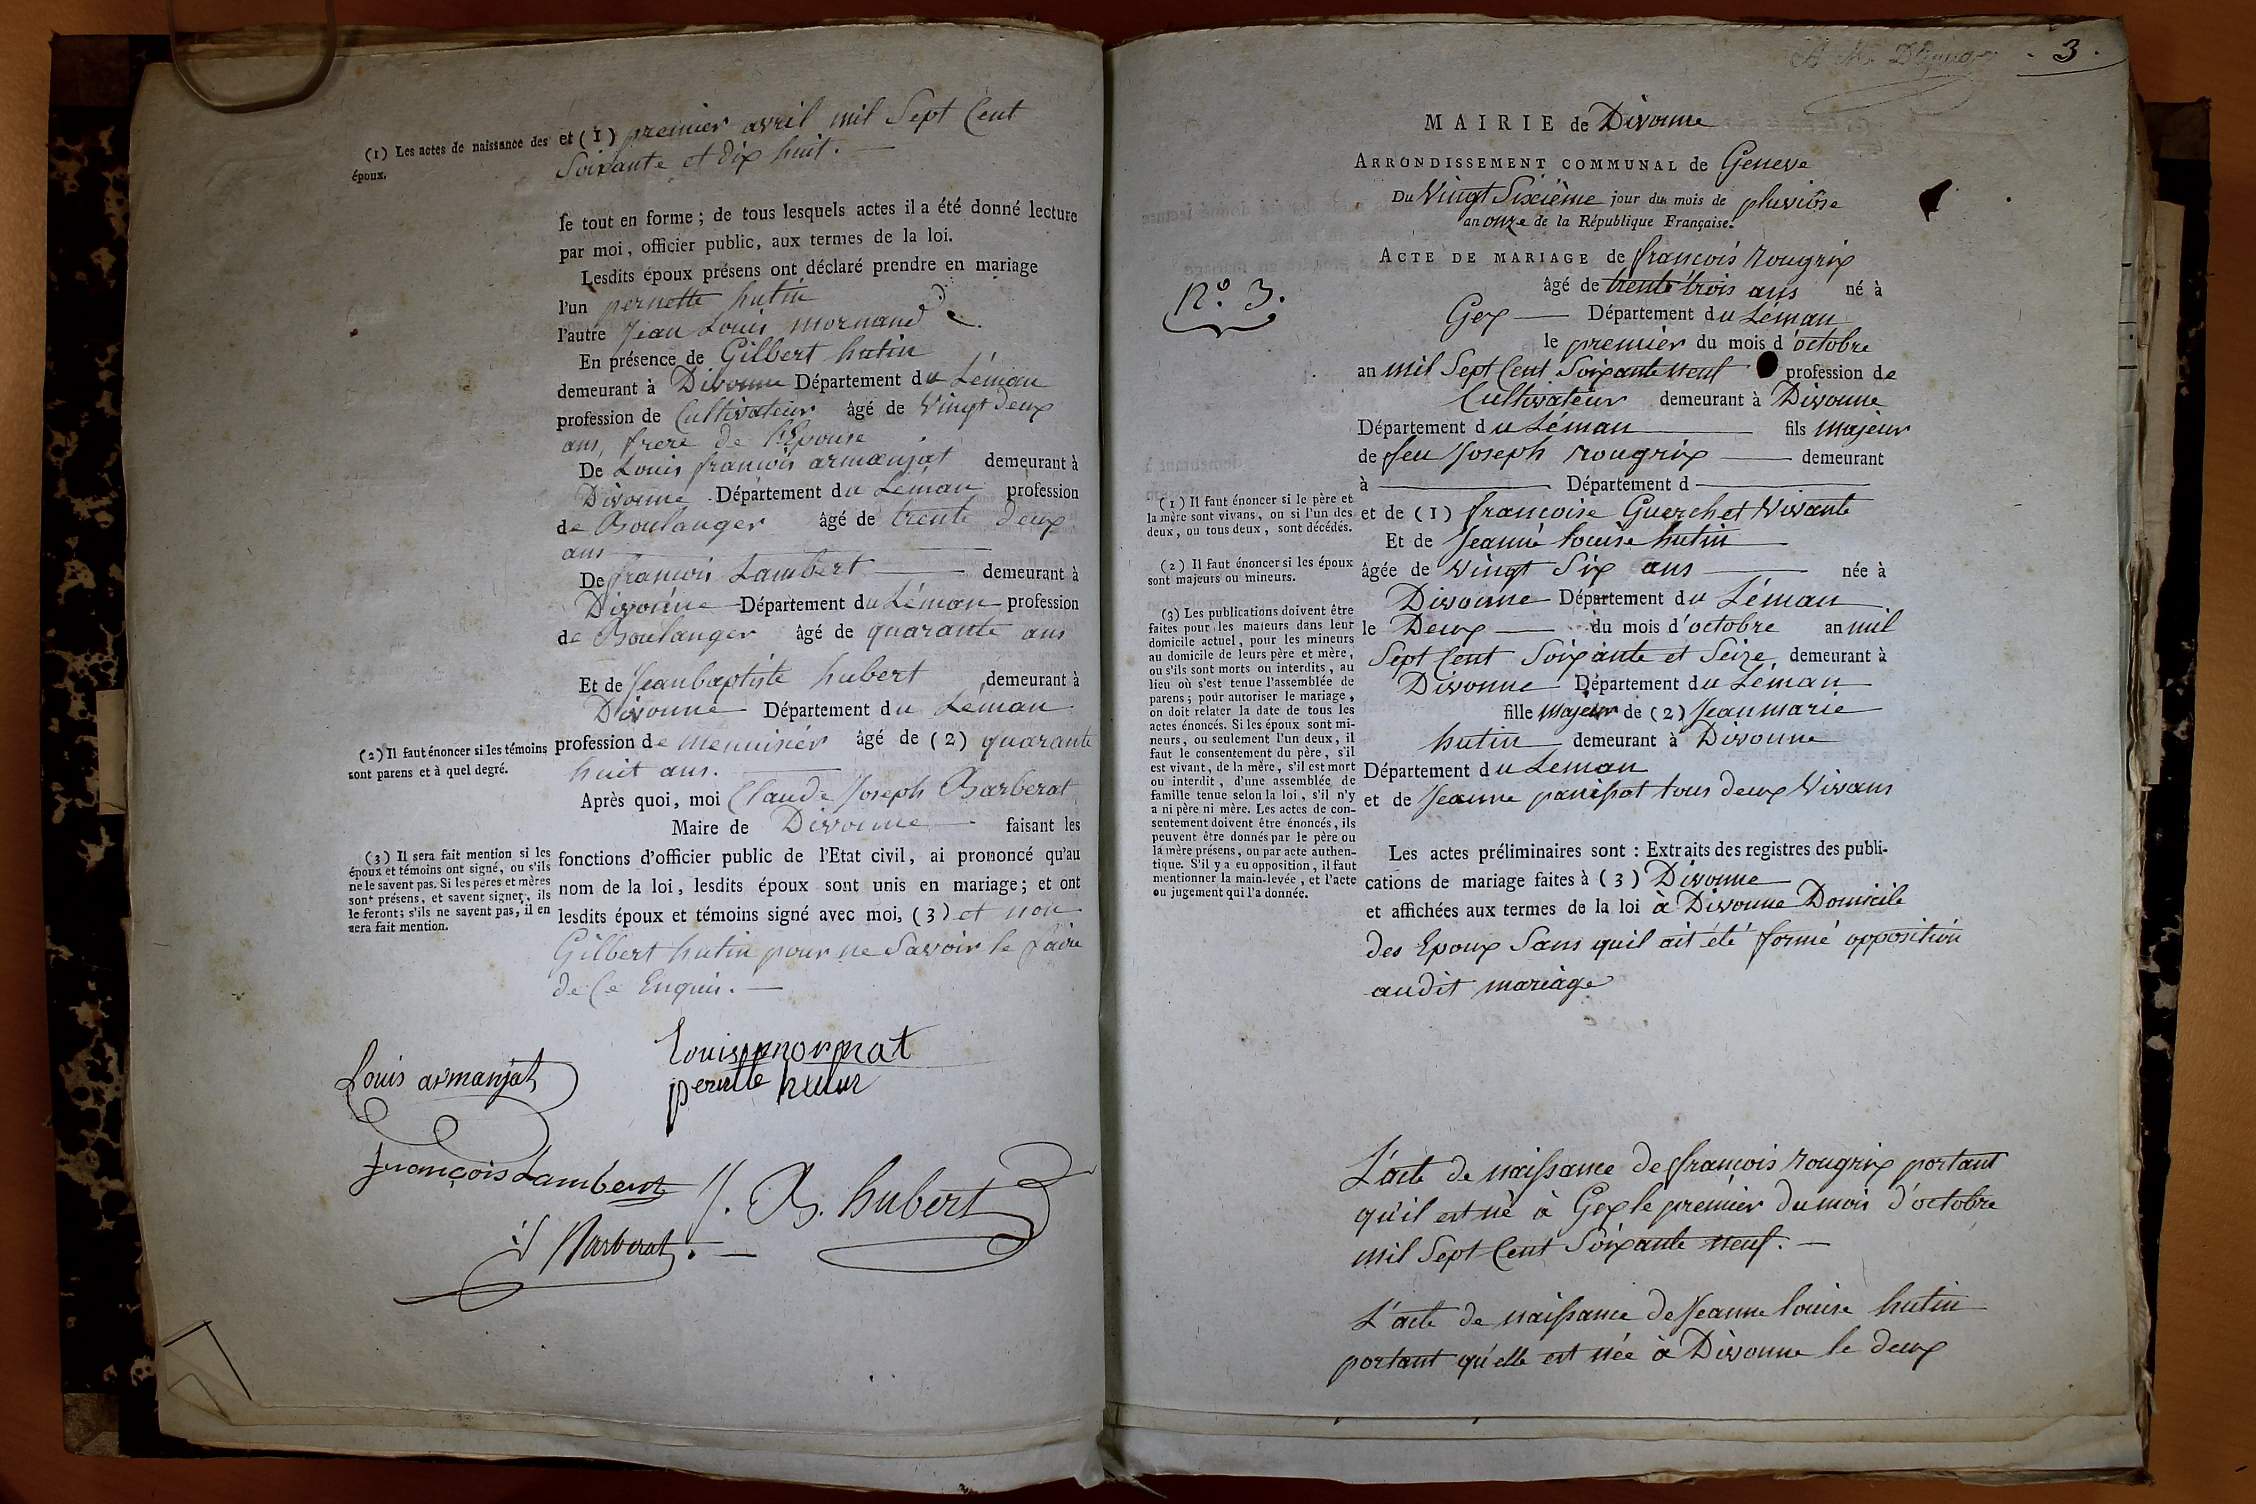 (1) Les actes de naissance des
époux.
et (1) premier avril mil Sept Cent
Soixante et dix huit.
le tout en forme ; de tous lesquels actes il a été donné lecture
par moi, officier public, aux termes de la loi.
Lesdits époux présens ont déclaré prendre en mariage
l'un pernette hutin
l'autre Jean Louis mornand
En présence de Gilbert hutin
demeurant à Divonne Département du Léman
profession de Cultivateur âgé de Vingt deux
ans, frere de l'Epouse
De Louis francois armanjat demeurant à
Divonne Département du Léman profession
de Boulanger âgé de trente deux
ans
De francois Lambert demeurant à
Divonne Département du Léman profession
de Boulanger âgé de quarante ans
Et de Jean baptiste hubert demeurant à
Divonne Département du Léman
(2) Il faut énoncer si les témoins
sont parens et à quel degré.
profession de menuisier âgé de (2) quarante
huit ans.
Après quoi, moi Claude Joseph Barberat
Maire de Divonne faisant les
(3) Il sera fait mention si les
époux et témoins ont signé, ou s'ils
ne le savent pas. Si les pères et mères
sont présens, et savent signer, ils
le feront; s'ils ne savent pas, il en
sera fait mention.
fonctions d'officier public de l'Etat civil, ai prononcé qu'au
nom de la loi, lesdits époux sont unis en mariage; et ont
lesdits époux et témoins signé avec moi, (3) et non
Gilbert hutin pour ne Savoir le faire
de Ce Enquis.
Louis mornat
Louis armanjat
pernette hutin
françois Lambert
J. B. hubert
Barberat
3
MAIRIE de Divonne
ARRONDISSEMENT COMMUNAL de Geneve
Du Vingt Sixième jour du mois de pluviôse
an onze de la République Française.
N.º 3.
ACTE DE MARIAGE de francois rougrix
âgé de trente trois ans né à
Gex Département du Léman
le premier du mois d'octobre
an mil Sept Cent Soixante neuf profession de
Cultivateur demeurant à Divonne
Département du Léman fils majeur
de feu Joseph rougrix demeurant
à Département d
(1) Il faut énoncer si le père et
la mère sont vivans, ou si l'un des
deux, ou tous deux, sont décédés.
et de (1) francoise Guerchet Vivante
Et de Jeanne louise hutin
(2) Il faut énoncer si les époux
sont majeurs ou mineurs.
âgée de Vingt Six ans née à
Divonne Département du Léman
(3) Les publications doivent être
faites pour les majeurs dans leur
domicile actuel, pour les mineurs
au domicile de leurs père et mère,
ou s'ils sont morts ou interdits, au
lieu où s'est tenue l'assemblée de
parens; pour autoriser le mariage,
on doit relater la date de tous les
actes énoncés. Si les époux sont mi-
neurs, ou seulement l'un deux, il
faut le consentement du père, s'il
est vivant, de la mère, s'il est mort
ou interdit, d'une assemblée de
famille tenue selon la loi, s'il n'y
a ni père ni mère. Les actes de con-
sentement doivent être énoncés, ils
peuvent être donnés par le père ou
la mère présens, ou par acte authen-
tique. S'il y a eu opposition, il faut
mentionner la main-levée, et l'acte
ou jugement qui l'a donnée.
le Deux du mois d'octobre an mil
Sept Cent Soixante et Seize demeurant à
Divonne Département du Léman
fille majeur de (2) Jean marie
hutin demeurant à Divonne
Département du Léman
et de Jeanne panissot tous deux Vivans
Les actes préliminaires sont : Extraits des registres des publi-
cations de mariage faites à (3) Divonne
et affichées aux termes de la loi à Divonne Domicile
des Epoux Sans quil ait été formé opposition
audit mariage
L'acte de naissance de francois rougrix portant
qu'il est né à Gex le premier du mois d'octobre
mil Sept Cent Soixante neuf.
L'acte de naissance de Jeanne louise hutin
portant qu'elle est née à Divonne le deux